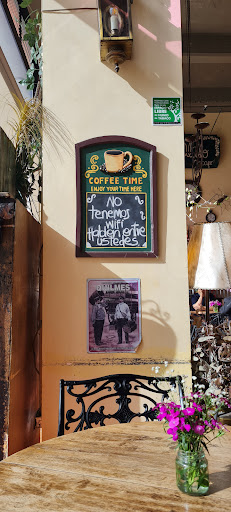 COFFEE TIME
ENJOY YOUR TIME HERE
No
tenemos
wifi
Hablen entre
ustedes
QUILMES